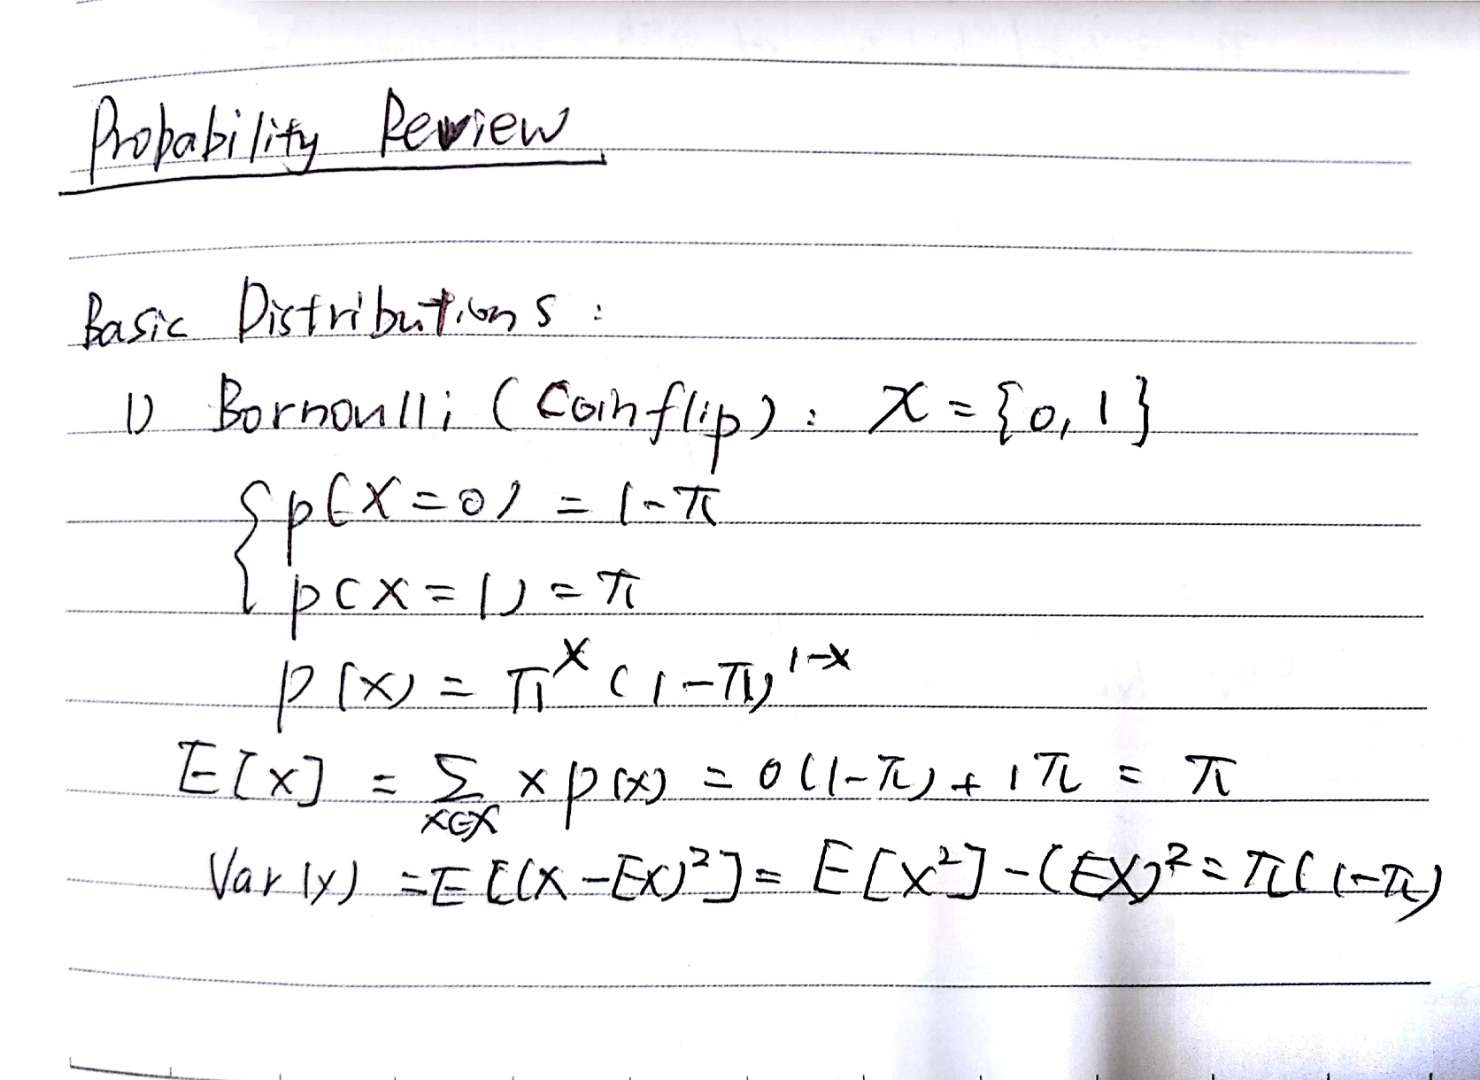 Probability Review
Basic Distributions :
1) Bornoulli (Coin flip) : X = {0, 1}
p(X=0) = 1-π
p(X=1) = π
p(x) = π^x (1-π)^{1-x}
E[x] = Σ_{x∈X} x p(x) = 0(1-π) + 1π = π
Var(y) = E[(X-EX)²] = E[X²] - (EX)² = π(1-π)